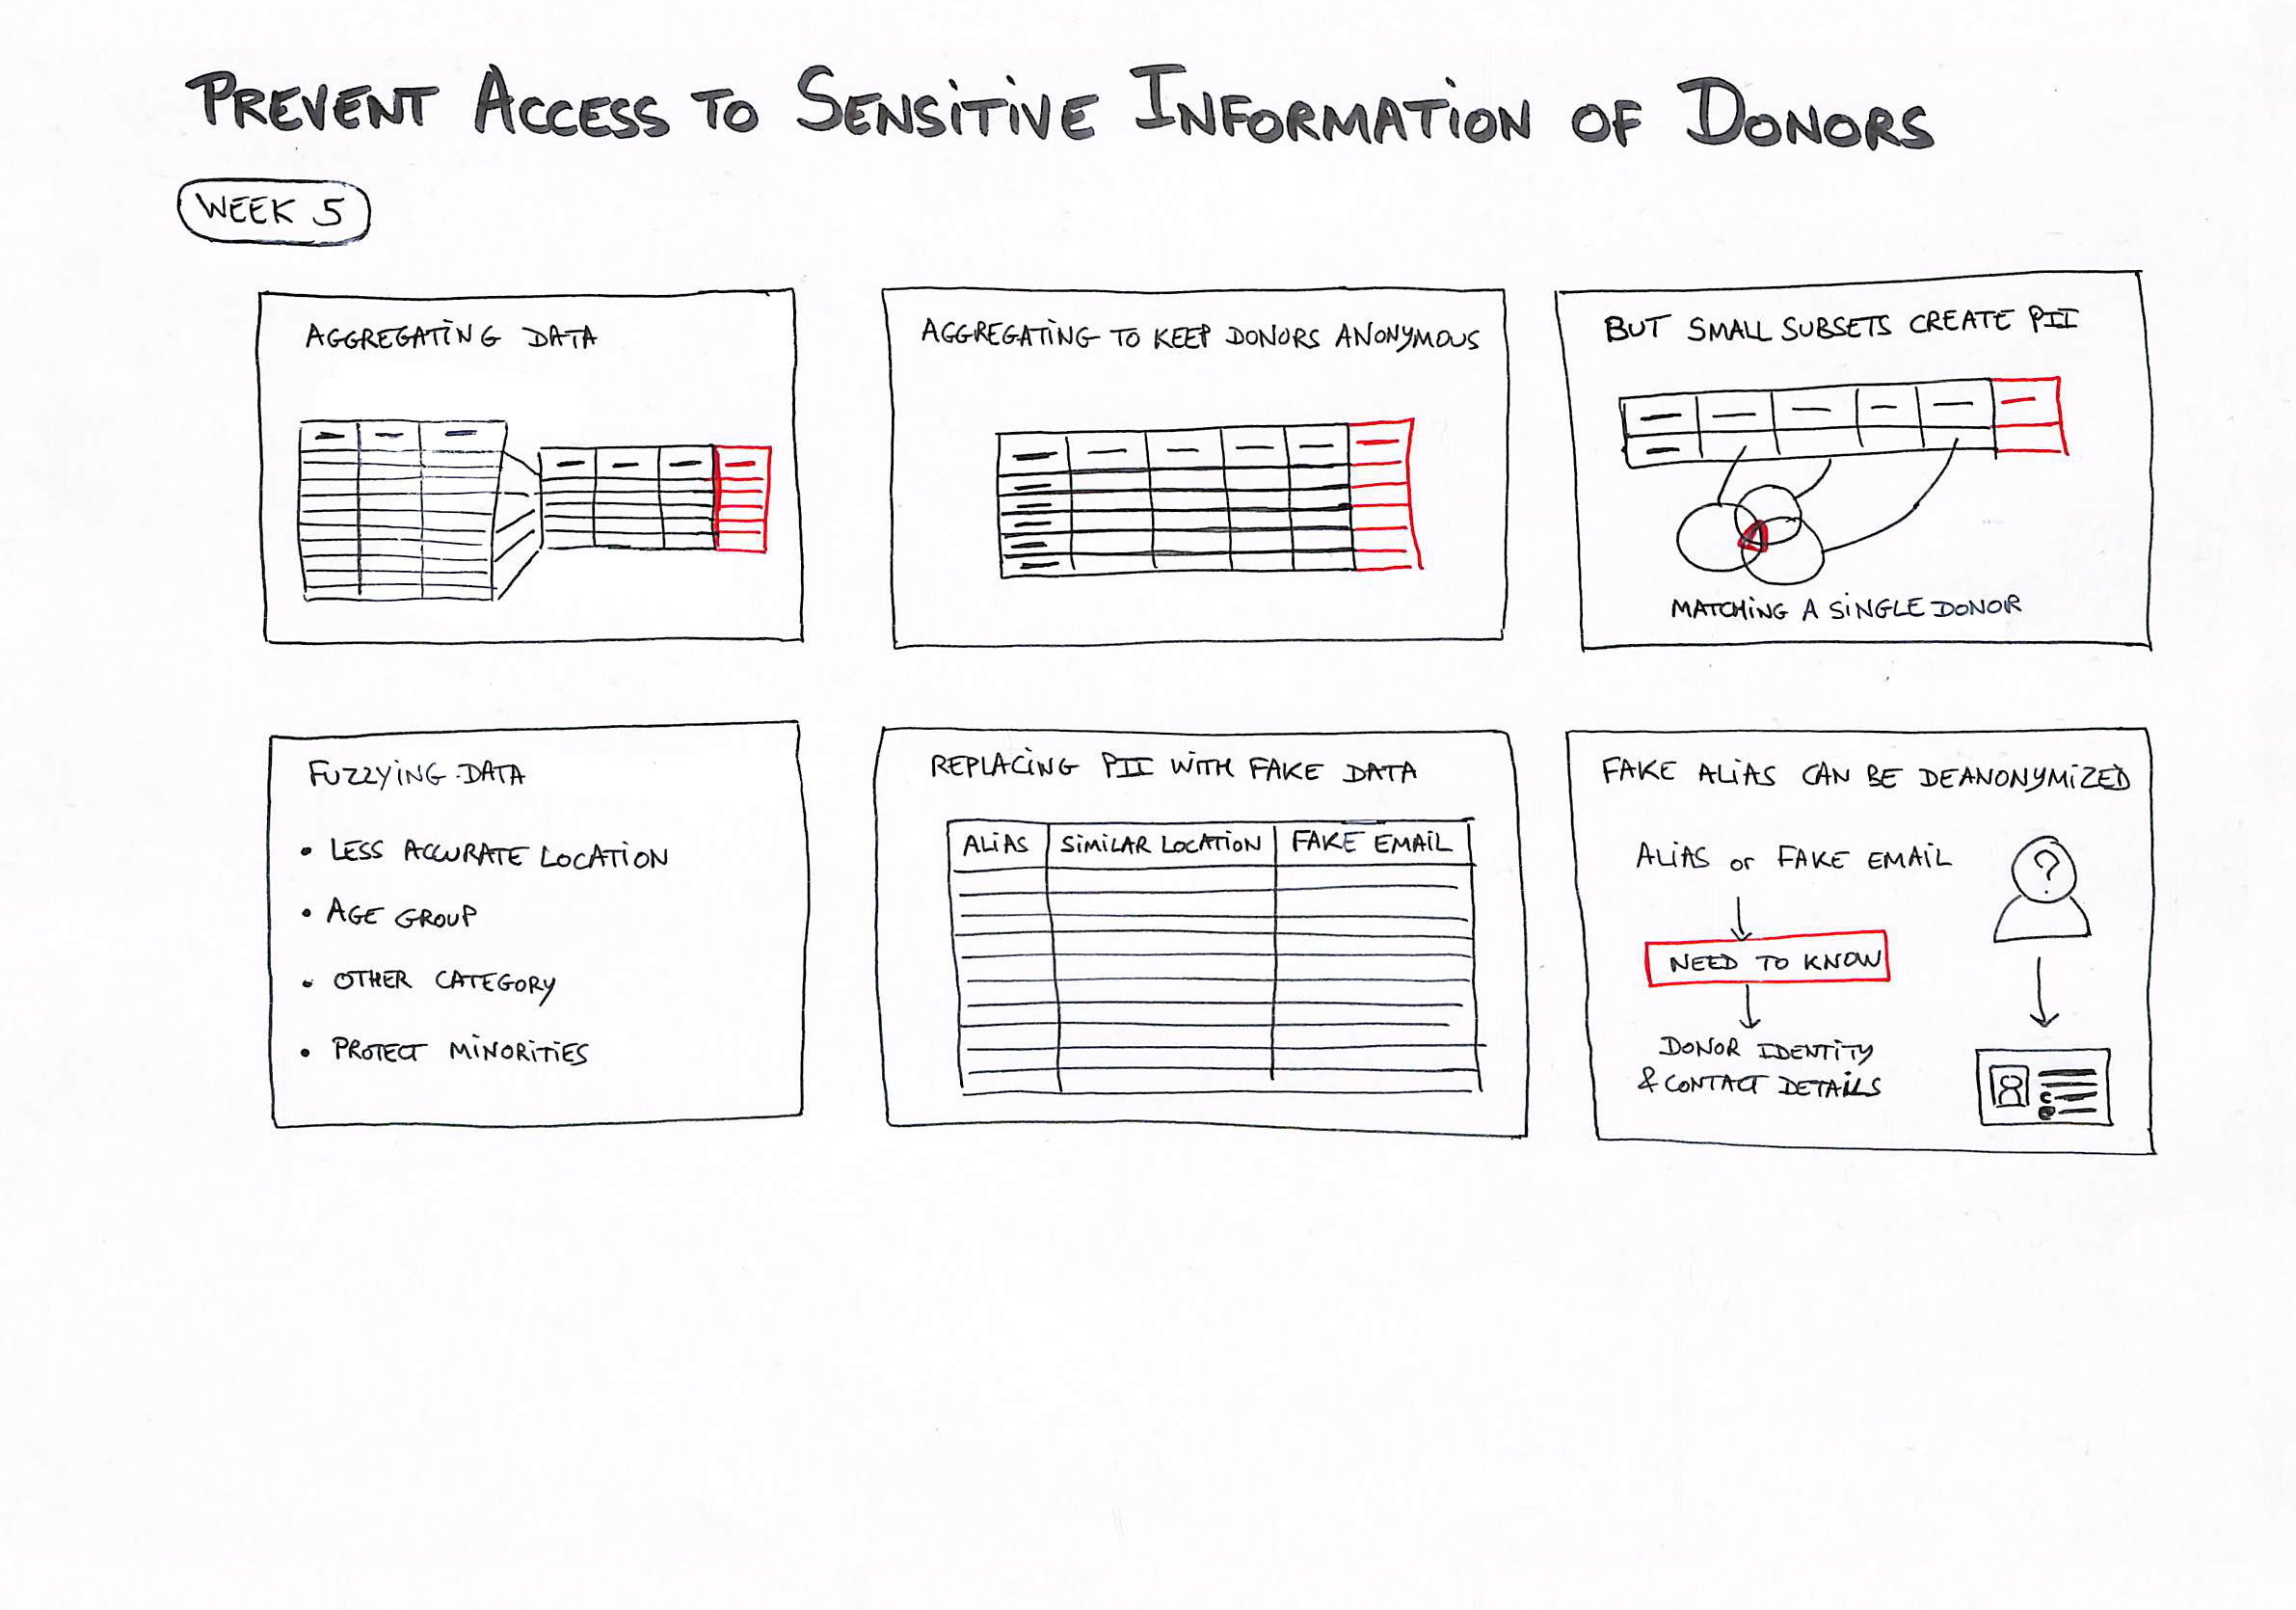 PREVENT ACCESS TO SENSITIVE INFORMATION OF DONORS
WEEK 5
AGGREGATING DATA
AGGREGATING TO KEEP DONORS ANONYMOUS
BUT SMALL SUBSETS CREATE PII
MATCHING A SINGLE DONOR
FUZZYING DATA
• LESS ACCURATE LOCATION
• AGE GROUP
• OTHER CATEGORY
• PROTECT MINORITIES
REPLACING PII WITH FAKE DATA
ALIAS SIMILAR LOCATION FAKE EMAIL
FAKE ALIAS CAN BE DEANONYMIZED
ALIAS or FAKE EMAIL
?
NEED TO KNOW
DONOR IDENTITY
& CONTACT DETAILS